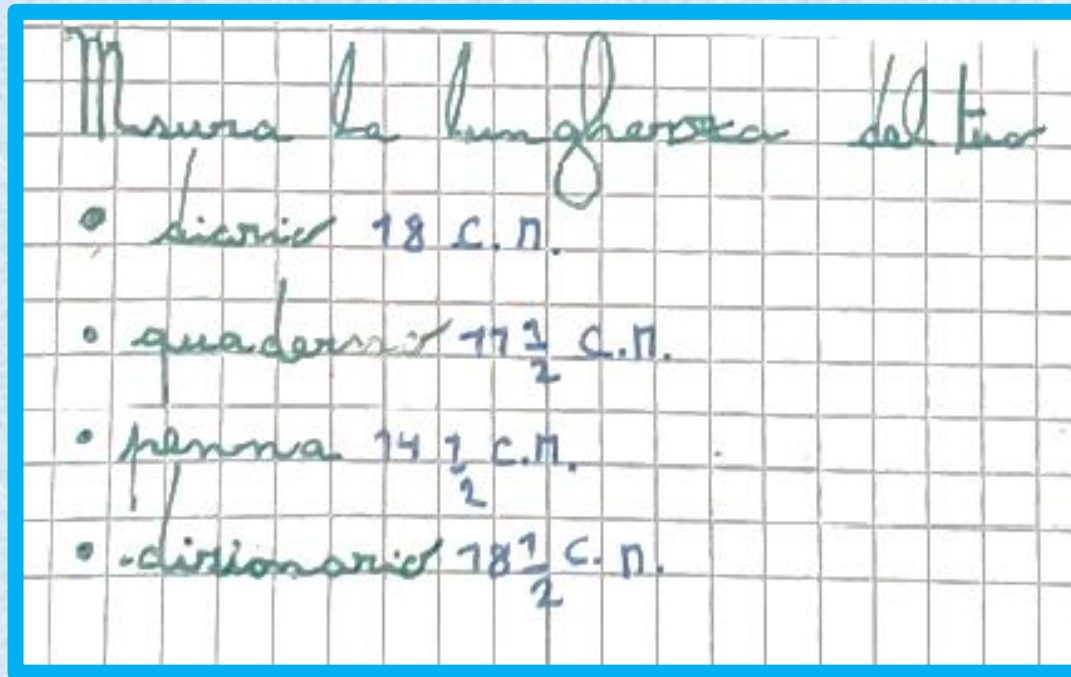 Misura la lunghezza del tuo
• diario 18 c.m.
• quaderno 17 1/2 c.m.
• penna 14 1/2 c.m.
• dizionario 18 1/2 c.m.